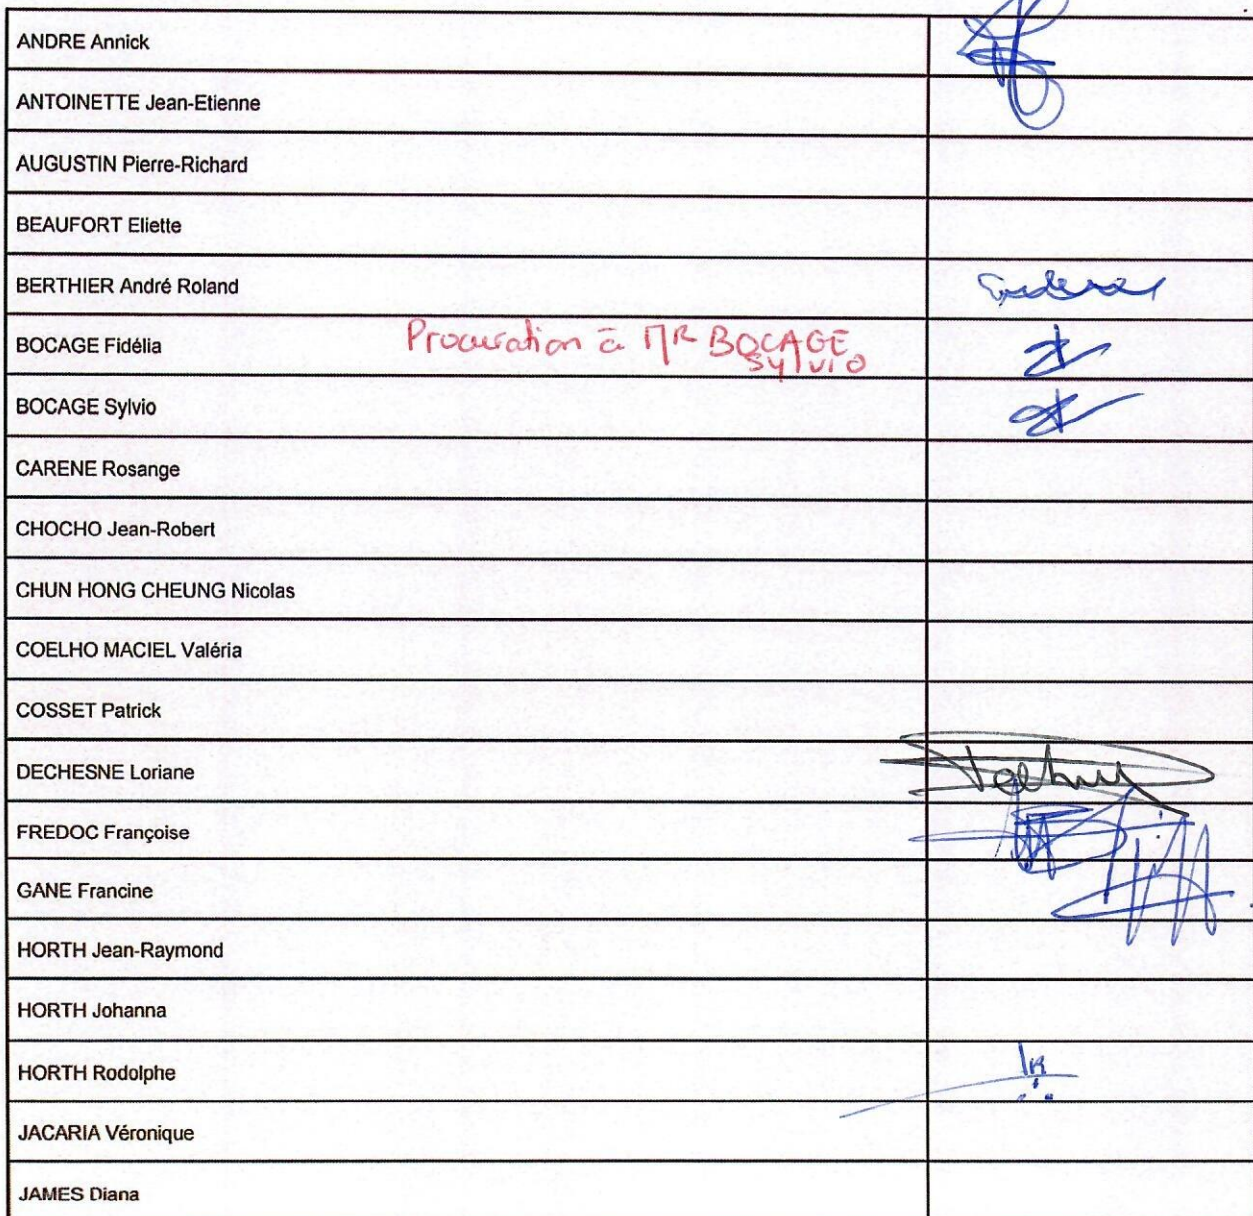 ANDRE Annick
ANTOINETTE Jean-Etienne
AUGUSTIN Pierre-Richard
BEAUFORT Eliette
BERTHIER André Roland
BOCAGE Fidélia
Procuration à MR BOCAGE
Sylvio
BOCAGE Sylvio
CARENE Rosange
CHOCHO Jean-Robert
CHUN HONG CHEUNG Nicolas
COELHO MACIEL Valéria
COSSET Patrick
DECHESNE Loriane
FREDOC Françoise
GANE Francine
HORTH Jean-Raymond
HORTH Johanna
HORTH Rodolphe
JACARIA Véronique
JAMES Diana